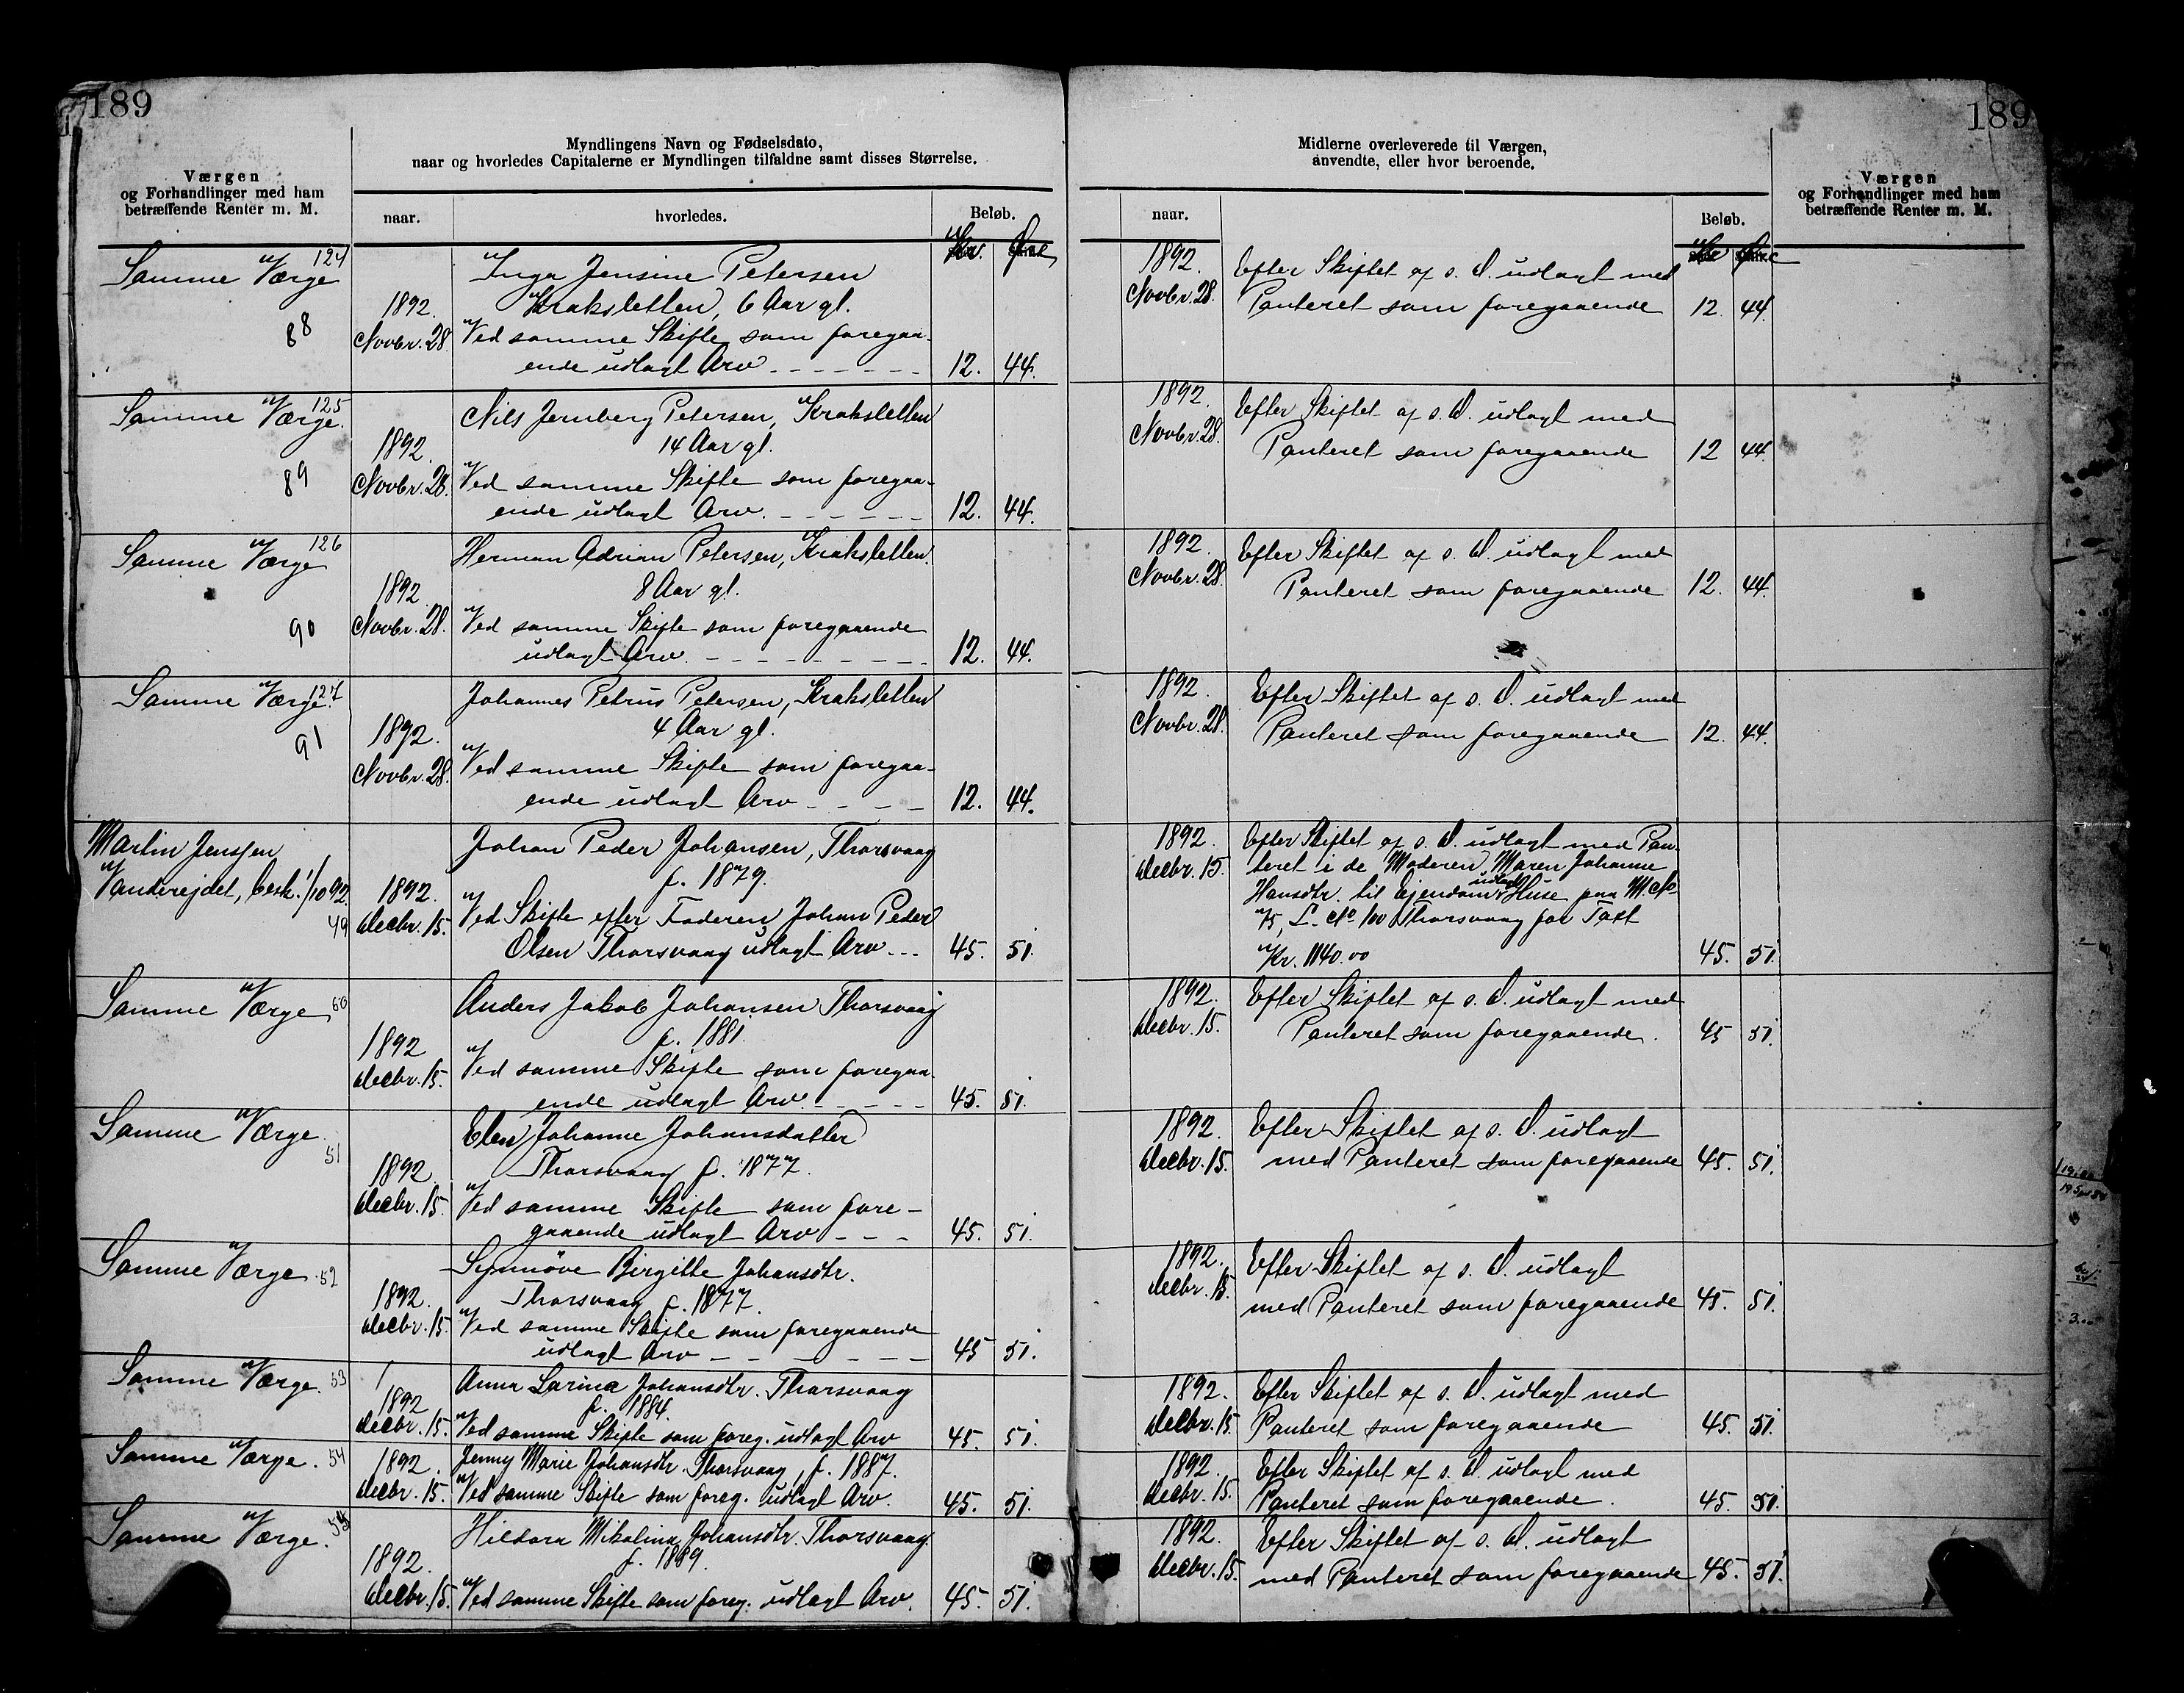 189
189
Værgen
og Forhandlinger med ham
betræffende Renter m. M.
Myndlingens Navn og Fødselsdato,
naar og hvorledes Capitalerne er Myndlingen tilfaldne samt disses Størrelse.
naar.
hvorledes.
Beløb.
Kr. Øre
Midlerne overleverede til Værgen,
anvendte, eller hvor beroende.
naar.
Beløb.
Kr Øre
Værgen
og Forhandlinger med ham
betræffende Renter m. M.
124
Samme Værge
88
1892.
Novbr. 28.
Inga Jensine Petersen
Kraksletten, 6 Aar gl.
Ved samme Skifte som foregaa-
ende udlagt Arv 12. 44.
1892.
Novbr. 28.
Efter Skiftet af s. D. udlagt med
Panteret som foregaaende 12. 44.
125
Samme Værge.
89
1892.
Novbr. 28.
Nils Jernberg Petersen, Kraksletten
14 Aar gl.
Ved samme Skifte som foregaa-
ende udlagt Arv. 12. 44.
1892.
Novbr. 28.
Efter Skiftet af s. D. udlagt med
Panteret som foregaaende 12 44.
126
Samme Værge
90
1892
Novbr. 28.
Herman Adrian Petersen, Kraksletten.
8 Aar gl.
Ved samme Skifte som foregaaende
udlagt Arv. 12. 44.
1892.
Novbr. 28.
Efter Skiftet af s. D. udlagt med
Panteret som foregaaende 12. 44.
127
Samme Værge.
91
1892.
Novbr. 28.
Johannes Petrus Petersen, Kraksletten
4 Aar gl.
Ved samme Skifte som foregaa-
ende udlagt Arv 12. 44.
1892.
Novbr. 28.
Efter Skiftet af s. D. udlagt med
Panteret som foregaaende 12. 44.
Martin Jenssen
Vandvejdet, besk. 1/10 92.
49
1892.
Decbr. 15.
Johan Peder Johansen, Thorsvaag
f. 1879.
Ved Skifte efter Faderen Johan Peder
Olsen Thorsvaag udlagt Arv 45. 51.
1892.
Decbr. 15.
Efter Skiftet af s. D. udlagt med Pan-
teret i de Moderen Maren Johanne
Hansdtr. til Ejendom udlagte Huse paa M No
75, L. No. 100 Thorsvaag for Taxt
Kr. 1140.00 45. 51.
Samme Værge 50
1892
Decbr. 15.
Anders Jakob Johansen Thorsvaag
f. 1881.
Ved samme Skifte som foregaa-
ende udlagt Arv. 45. 51.
1892.
Decbr. 15.
Efter Skiftet af s. D. udlagt med
Panteret som foregaaende. 45 51.
Samme Værge.
51
1892
Decbr. 15.
Elen Johanne Johansdatter
Thorsvaag f. 1877.
Ved samme Skifte som fore-
gaaende udlagt Arv 45. 51.
1892.
Decbr. 15.
Efter Skiftet af s. D. udlagt
med Panteret som foregaaende 45. 51.
Samme Værge 52
1892.
Decbr. 15.
Synnöve Birgitte Johansdtr.
Thorsvaag f. 1877.
Ved samme Skifte som foregaaende
udlagt Arv 45 51.
1892.
Decbr. 15.
Efter Skiftet af s. D. udlagt
med Panteret som foregaaende 45. 51.
Samme Værge. 53
1892
Decbr. 15.
Anna Larina Johansdtr. Thorsvaag
f. 1884.
Ved samme Skifte som foreg. udlagt Arv 45. 51.
1892.
Decbr. 15
Efter Skiftet af s. D. udlagt med
Panteret som foregaaende 45. 51.
Samme Værge. 54
1892.
Decbr. 15.
Jenny Marie Johansdtr. Thorsvaag, f. 1887.
Ved samme Skifte som foreg. udlagt Arv. 45. 51.
1892
Decbr. 15.
Efter Skiftet af s. D. udlagt med
Panteret som foregaaende. 45. 51.
Samme Værge.
1892.
Decbr. 15.
Hildora Mikalina Johansdtr. Thorsvaag.
f. 1889.
Ved samme Skifte som foreg. udlagt Arv. 45. 51.
1892.
Decbr. 15.
Efter Skiftet af s. D. udlagt
med Panteret som foregaaende 45. 51.